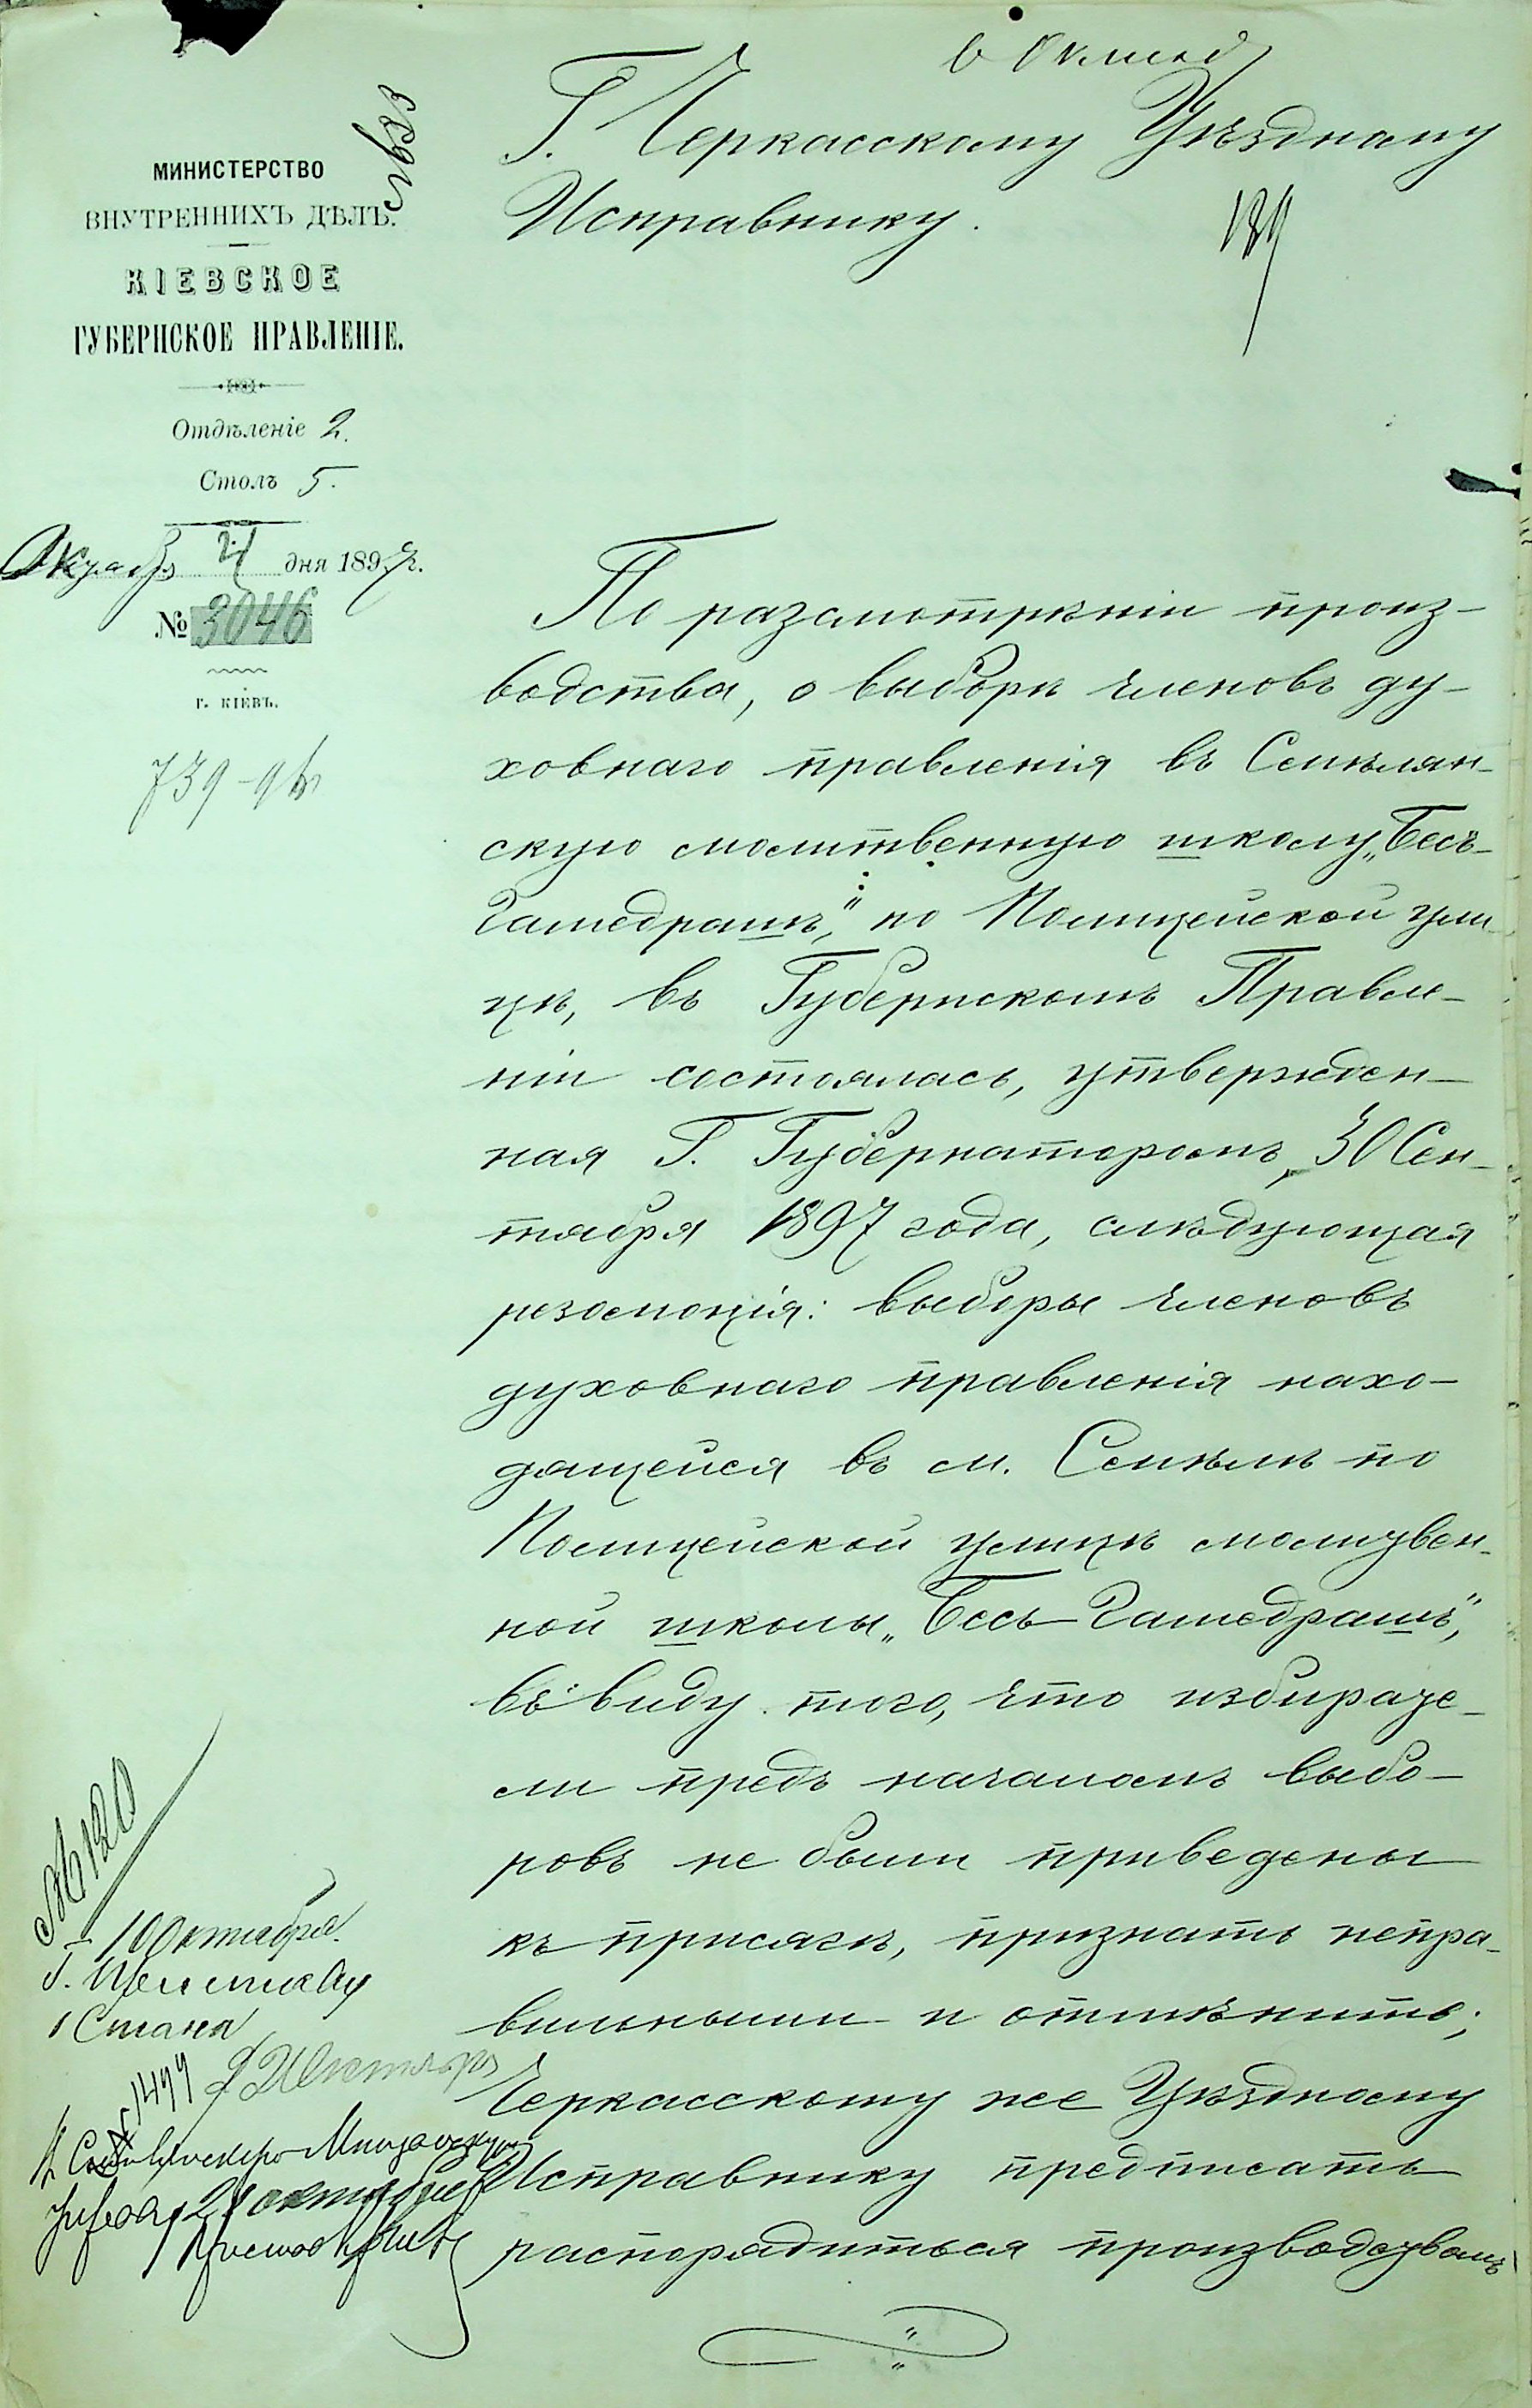 Г. Черкасскому Уѣздному
Исправнику.
189
МИНИСТЕРСТВО
ВНУТРЕННИХЪ ДѢЛЪ.
КІЕВСКОЕ
ГУБЕРНСКОЕ ПРАВЛЕНІЕ.
Отдѣленіе 2.
Столъ 5.
дня 1897 г.
№ 3046
г. КІЕВЪ.
По разсмотрѣніи произ-
водства, о выборѣ членовъ ду-
ховнаго правленія въ Смѣлян-
скую молитвенную школу „Бесъ-
Гамедрашъ“, по Полицейской ули-
цѣ, въ Губернскомъ Правле-
ніи состоялась, утвержден-
ная Г. Губернаторомъ, 30 Сен-
тября 1897 года, слѣдующая
резолюція: выборы членовъ
духовнаго правленія нахо-
дящейся въ м. Смѣлѣ по
Полицейской улицѣ молитвен-
ной школы „Бесъ-Гамедрашъ“,
въ виду того, что избирате-
ли предъ началомъ выбо-
ровъ не были приведены
къ присягѣ, признать непра-
вильными и отмѣнить;
Черкасскому же Уѣздному
Исправнику предписать
распорядиться производствомъ
№ 120
10 Октября.
Г. Приставу
1 Стана